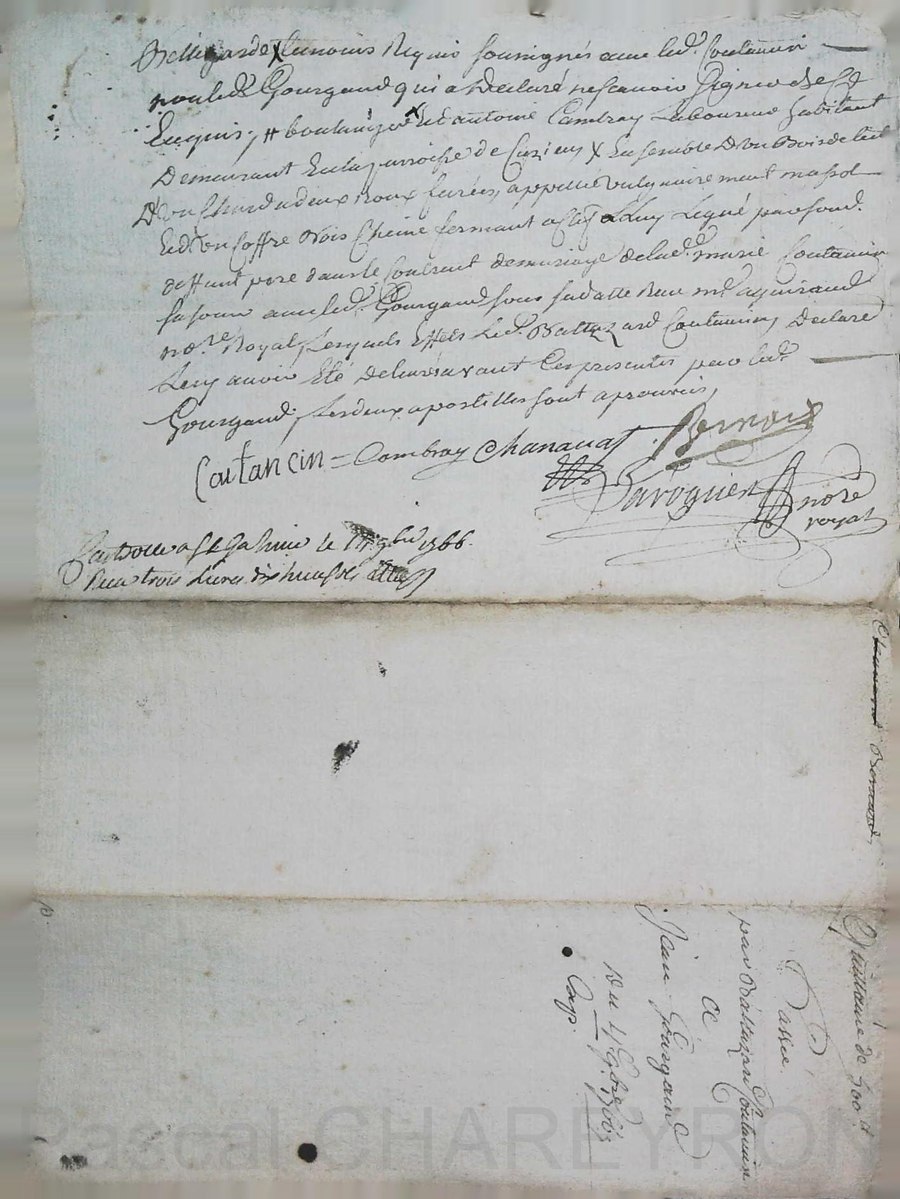 Bellegarde temoins Requis soussignés avec led. Coutancin
non led. Gourgaud qui a declaré ne scavoir signer de ce
Enquis, # boulanger & antoine Combray Laboureur habitant
Demeurant en la parroisse de Cuzieu X Ensemble D'un Bois de lit
D'un Chard a deux Roux ferées, appellé vulgairement
un Coffre Bois Cheine fermant a Clef a Luy Legué par son d.
deffunt pere dans le Contract de mariage de lad. marie Coutancin
sa soeur avec led. Gourgaud sous sa datte Reçu me
nore. Royal, Lesquels Effets Led. Baltazard Coutancin Declare
Luy avoir Eté delivrés avant Ces presentes par led.
Gourgaud, Les deux apostilles sont aprouvés,
Coutancin = Combray Chanavat Bernard
nore
royal
a St Galmier le 1766.
Reçu trois Livres dix huit sols
Bernard
Quittance de 400 #
Passée
par Baltazard Coutancin
a
Jean Gourgaud
Du 4 1766
Exp.
Pascal CHARLEYRON